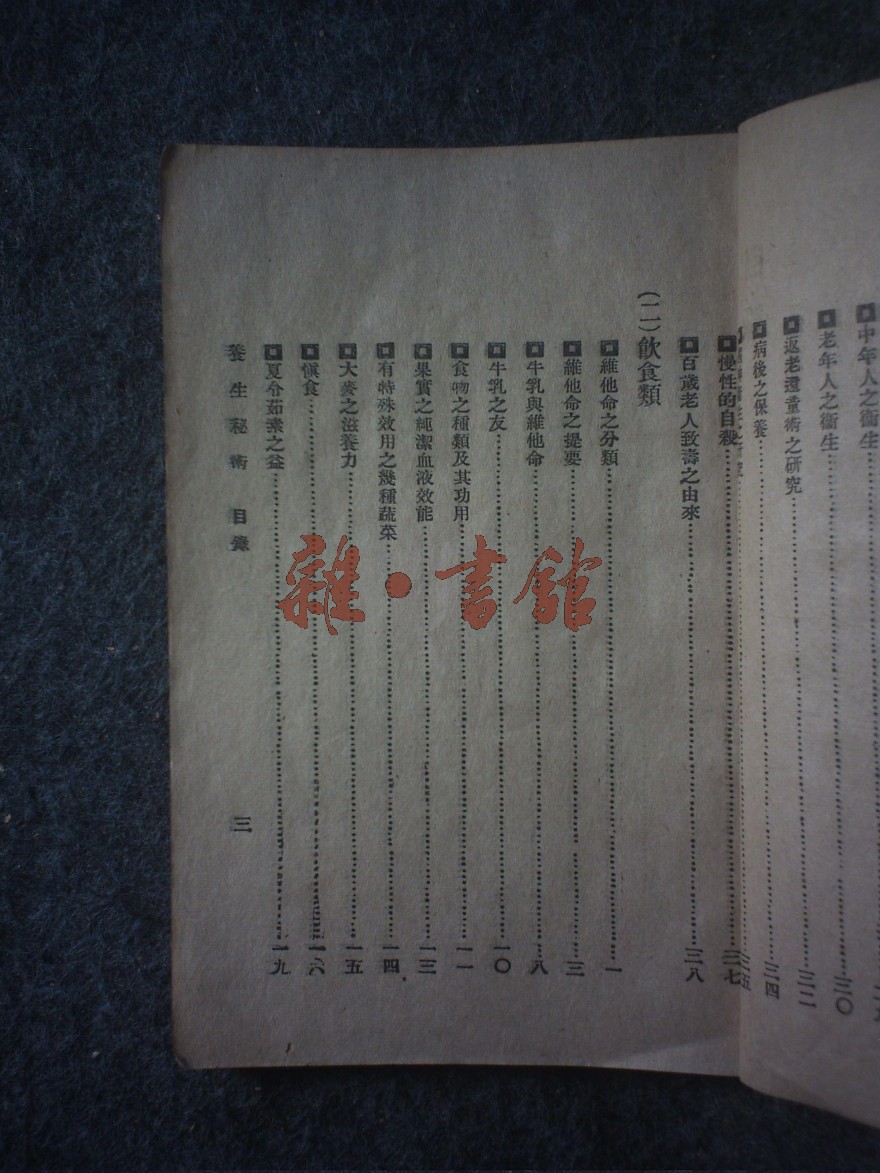 中年人之衞生
老年人之衞生……三〇
返老還童術之研究……三二
病後之保養……三四
三五
慢性的自殺……三七
百歲老人致壽之由來……三八
(二)飮食類
維他命之分類……一
維他命之提要……三
牛乳與維他命……八
牛乳之友……一〇
食物之種類及其功用……一一
果實之純潔血液效能……一三
有特殊效用之幾種蔬菜……一四
大麥之滋養力……一五
愼食……一六
夏令茹素之益……一九
養生秘術 目錄 三
雜·書舘